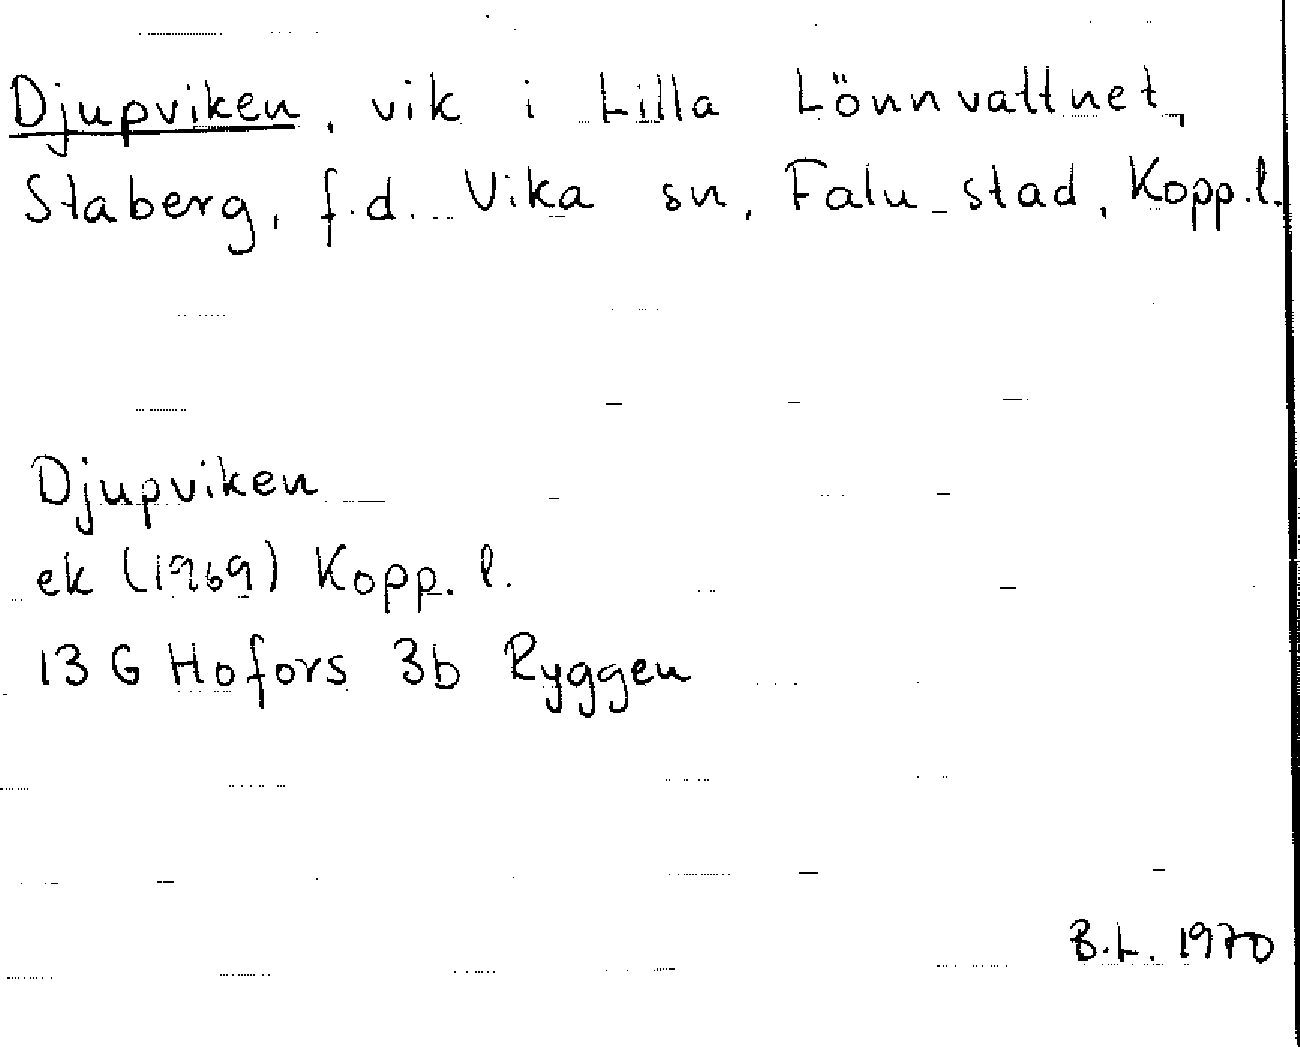 Djupviken, vik i Lilla Lönnvattnet,
Staberg, f.d. Vika sn, Falu stad, Kopp.l.
Djupviken
ek (1969) Kopp. l.
13 G Hofors 3b Ryggen
B.L. 1970